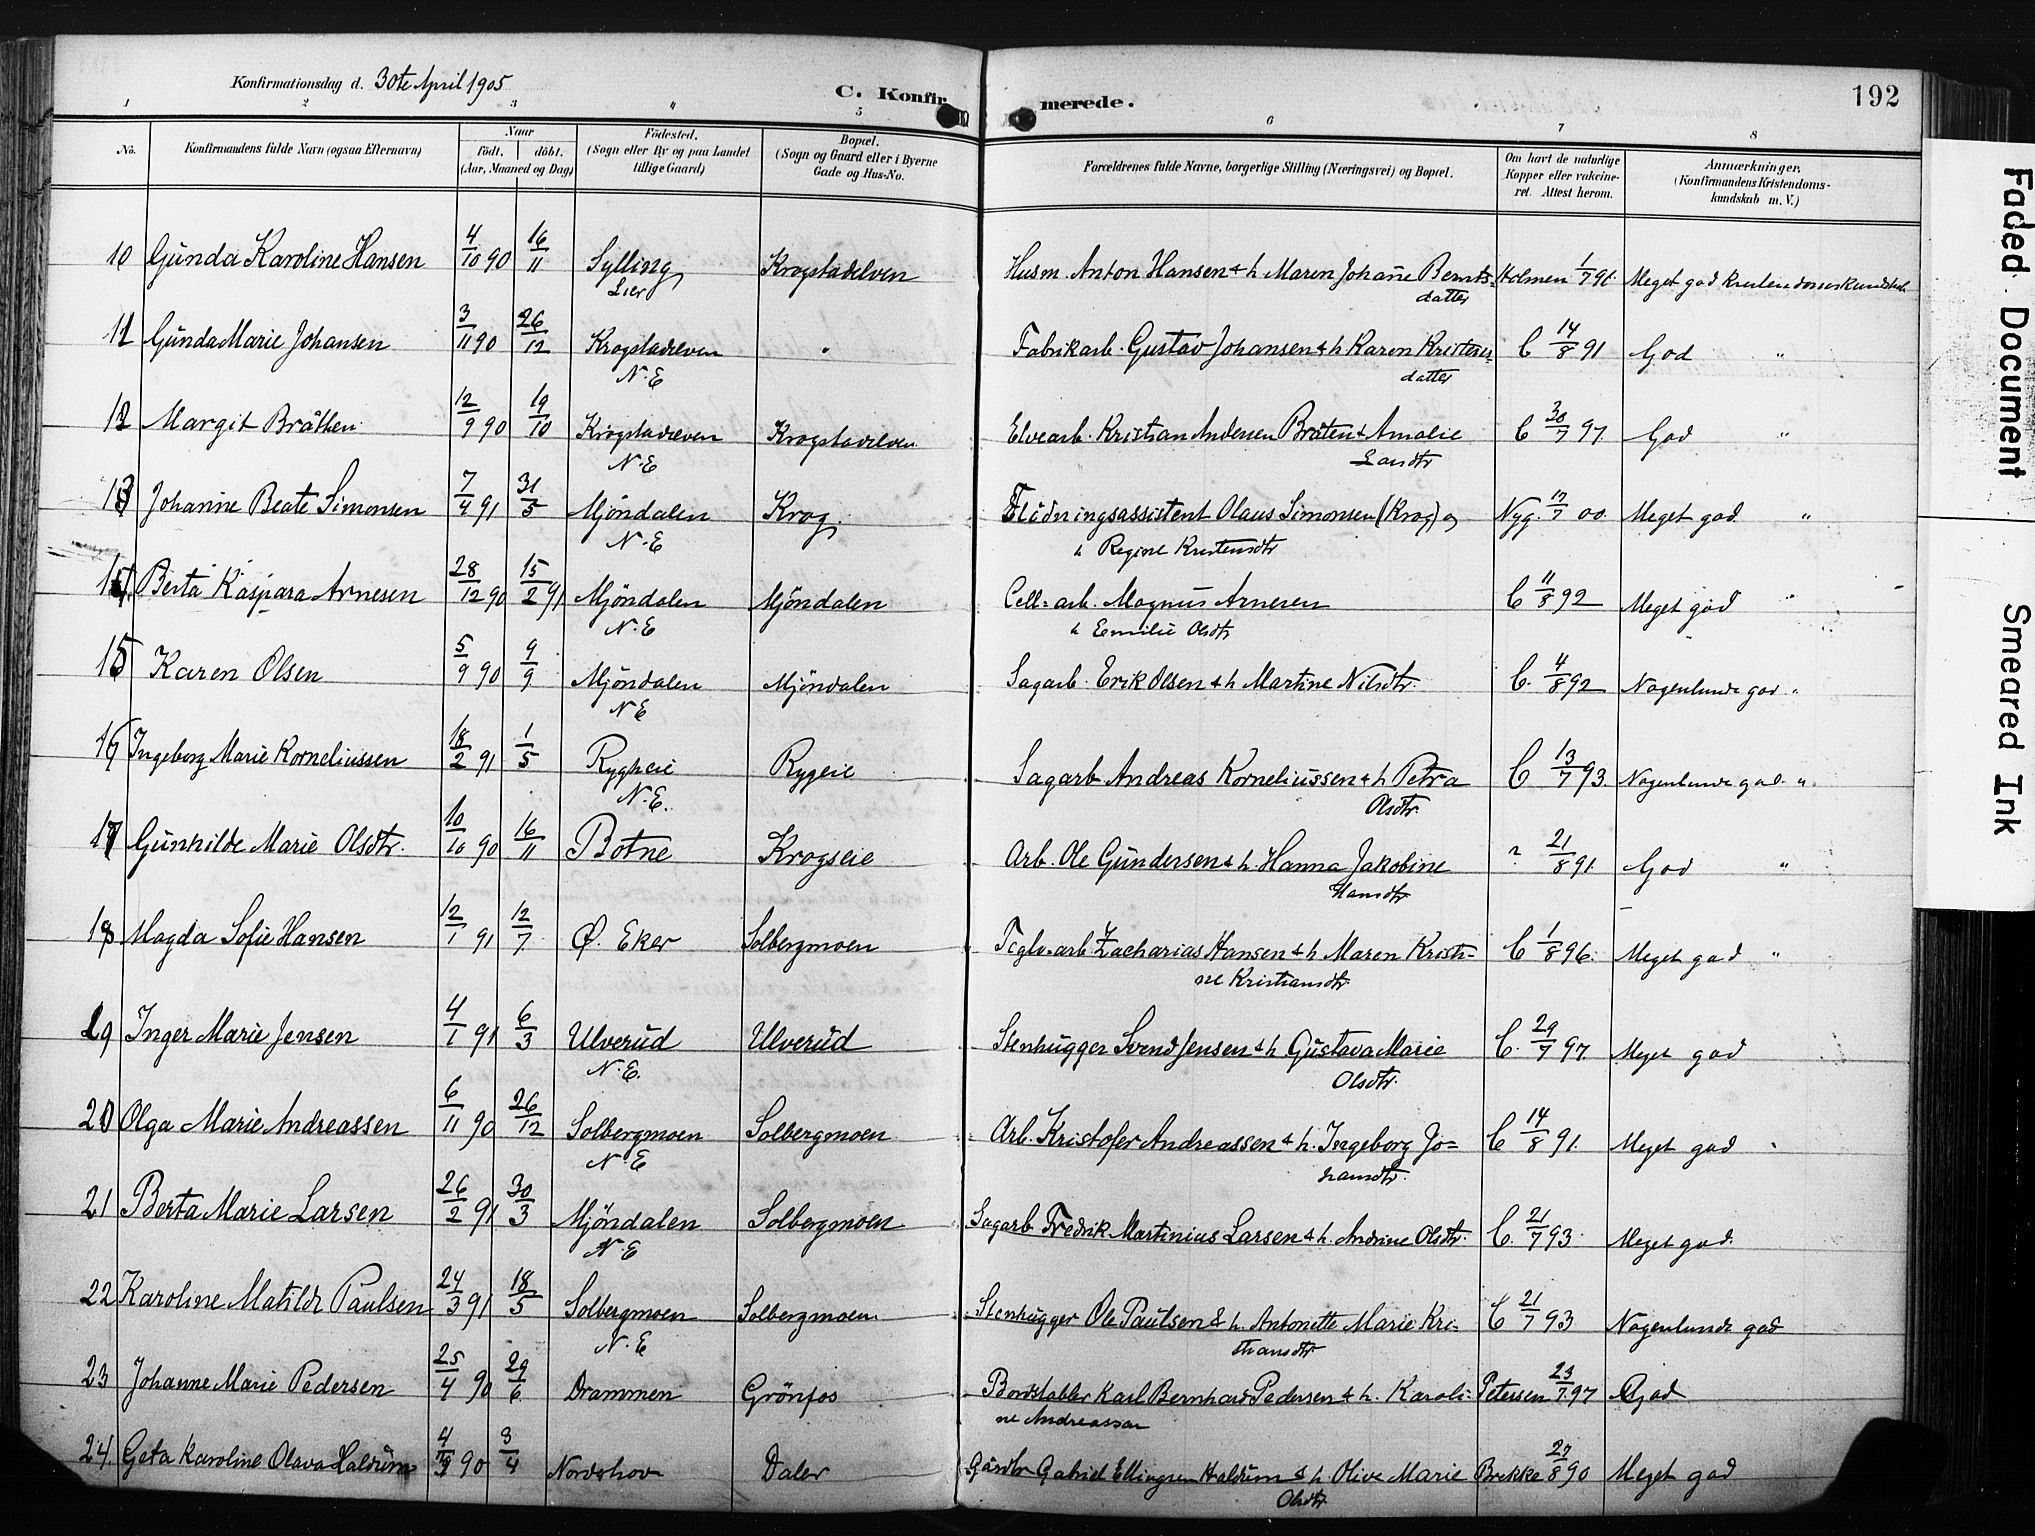 Konfirmationsdag d. 30te April 1905
C. Konfirmerede.
192
1 2 3 " 5 6 7 8
No.
Konfirmandens fulde Navn (ogsaa Efternavn)
Naar
födt. döbt.
(Aar, Maaned og Dag)
Födested.
(Sogn eller By og paa Landet
tillige Gaard)
Bopæl.
(Sogn og Gaard eller i Byerne
Gade og Hus-No.
Forældrenes fulde Navne, borgerlige Stilling (Næringsvei) og Bopæl.
Om havt de naturlige
Kopper eller vakcine-
ret. Attest herom.
Anmærkninger.
(Konfirmandens Kristendoms-
kundskab m. V.)
10 Gunda Karoline Hansen 4/10 90 16/11 Sylling Krogstadelven Husm. Anton Hansen & h Maren Johane Bernts- Holmen 1/7 91 Meget god kristendomskundskab
Lier datter
11 Gunda Marie Johansen 3/11 90 26/12 Krogstadelven " Fabrikarb. Gustav Johansen & h Karen Kristens- C 14/8 91 God "
N.E datter
12 Margit Bråthen 12/9 90 19/10 Krogstadelven Krogstadelven Elvearb. Kristian Andersen Bråten & Amalie C 30/7 97 God "
N.E Larsdtr
13 Johanne Beate Simonsen 7/4 91 31/5 Mjöndalen Krog. Flödningsassistent Olaus Simonsen (Krog) og Nyg. 17/7 00. Meget god. "
N.E h Regine Kristensdtr
14 Berta Kaspara Arnesen 28/12 90 15/2 91 Mjöndalen Mjöndalen Cell-arb. Magnus Arnesen C 11/8 92 Meget god "
N.E h Emilie Olsdtr
15 Karen Olsen 5/9 90 9/9 Mjöndalen Mjöndalen Sagarb. Erik Olsen & h Martine Nilsdtr. C. 4/8 92 Nogenlunde god "
N E
16 Ingeborg Marie Korneliussen 18/2 91 1/5 Rygheie Rygeie Sagarb Andreas Korneliussen & h Petra C 13/7 93. Nogenlunde god. "
N.E. Olsdtr.
17 Gunhilde Marie Olsdtr. 10/10 90 16/11 Botne Krogseie Arb. Ole Gundersen & h. Hanna Jakobine ? 21/8 91. God "
Hansdtr
18 Magda Sofie Hansen 12/1 91 12/7 Ø. Eker Solbergmoen Teglv.arb Zacharias Hansen & h Maren Kristi- C 1/8 96. Meget god "
ne Kristiansdtr.
19 Inger Marie Jensen 4/1 91 6/3 Ulverud Ulverud Stenhugger Svend Jensen & h Gustava Marie C. 29/7 97 Meget god
N.E. Olsdtr.
20 Olga Marie Andreassen 6/11 90 26/12 Solbergmoen Solbergmoen Arb. Kristofer Andreassen & h. Ingeborg Jo- C 14/8 91. Meget god "
N.E hansdtr.
21 Berta Marie Larsen 26/2 91 30/3 Mjöndalen Solbergmoen Sagarb Fredrik Martinius Larsen & h. Andrine Olsdtr. C. 21/7 93. Meget god.
N.E
22 Karoline Matilde Paulsen 24/3 91 18/5 Solbergmoen Solbergmoen Stenhugger Ole Paulsen & h. Antonette Marie Kri- C 21/7 93 Nogenlunde god
N.E stiansdtr
23 Johanne Marie Pedersen 25/4 90 29/6 Drammen Grönfos Bordstabler Karl Bernhard Pedersen & h. Karoli- Petersen 23/7 97 God
ne Andreassen
24. Karoline Olava Haldum 90 3/4 Nordehov Daler Gårdbr Gabriel Ellingsen Haldum & h. Olive Marie Brekke 27/8 90 Meget god
Olsdtr.
Faded Document Smeared Ink